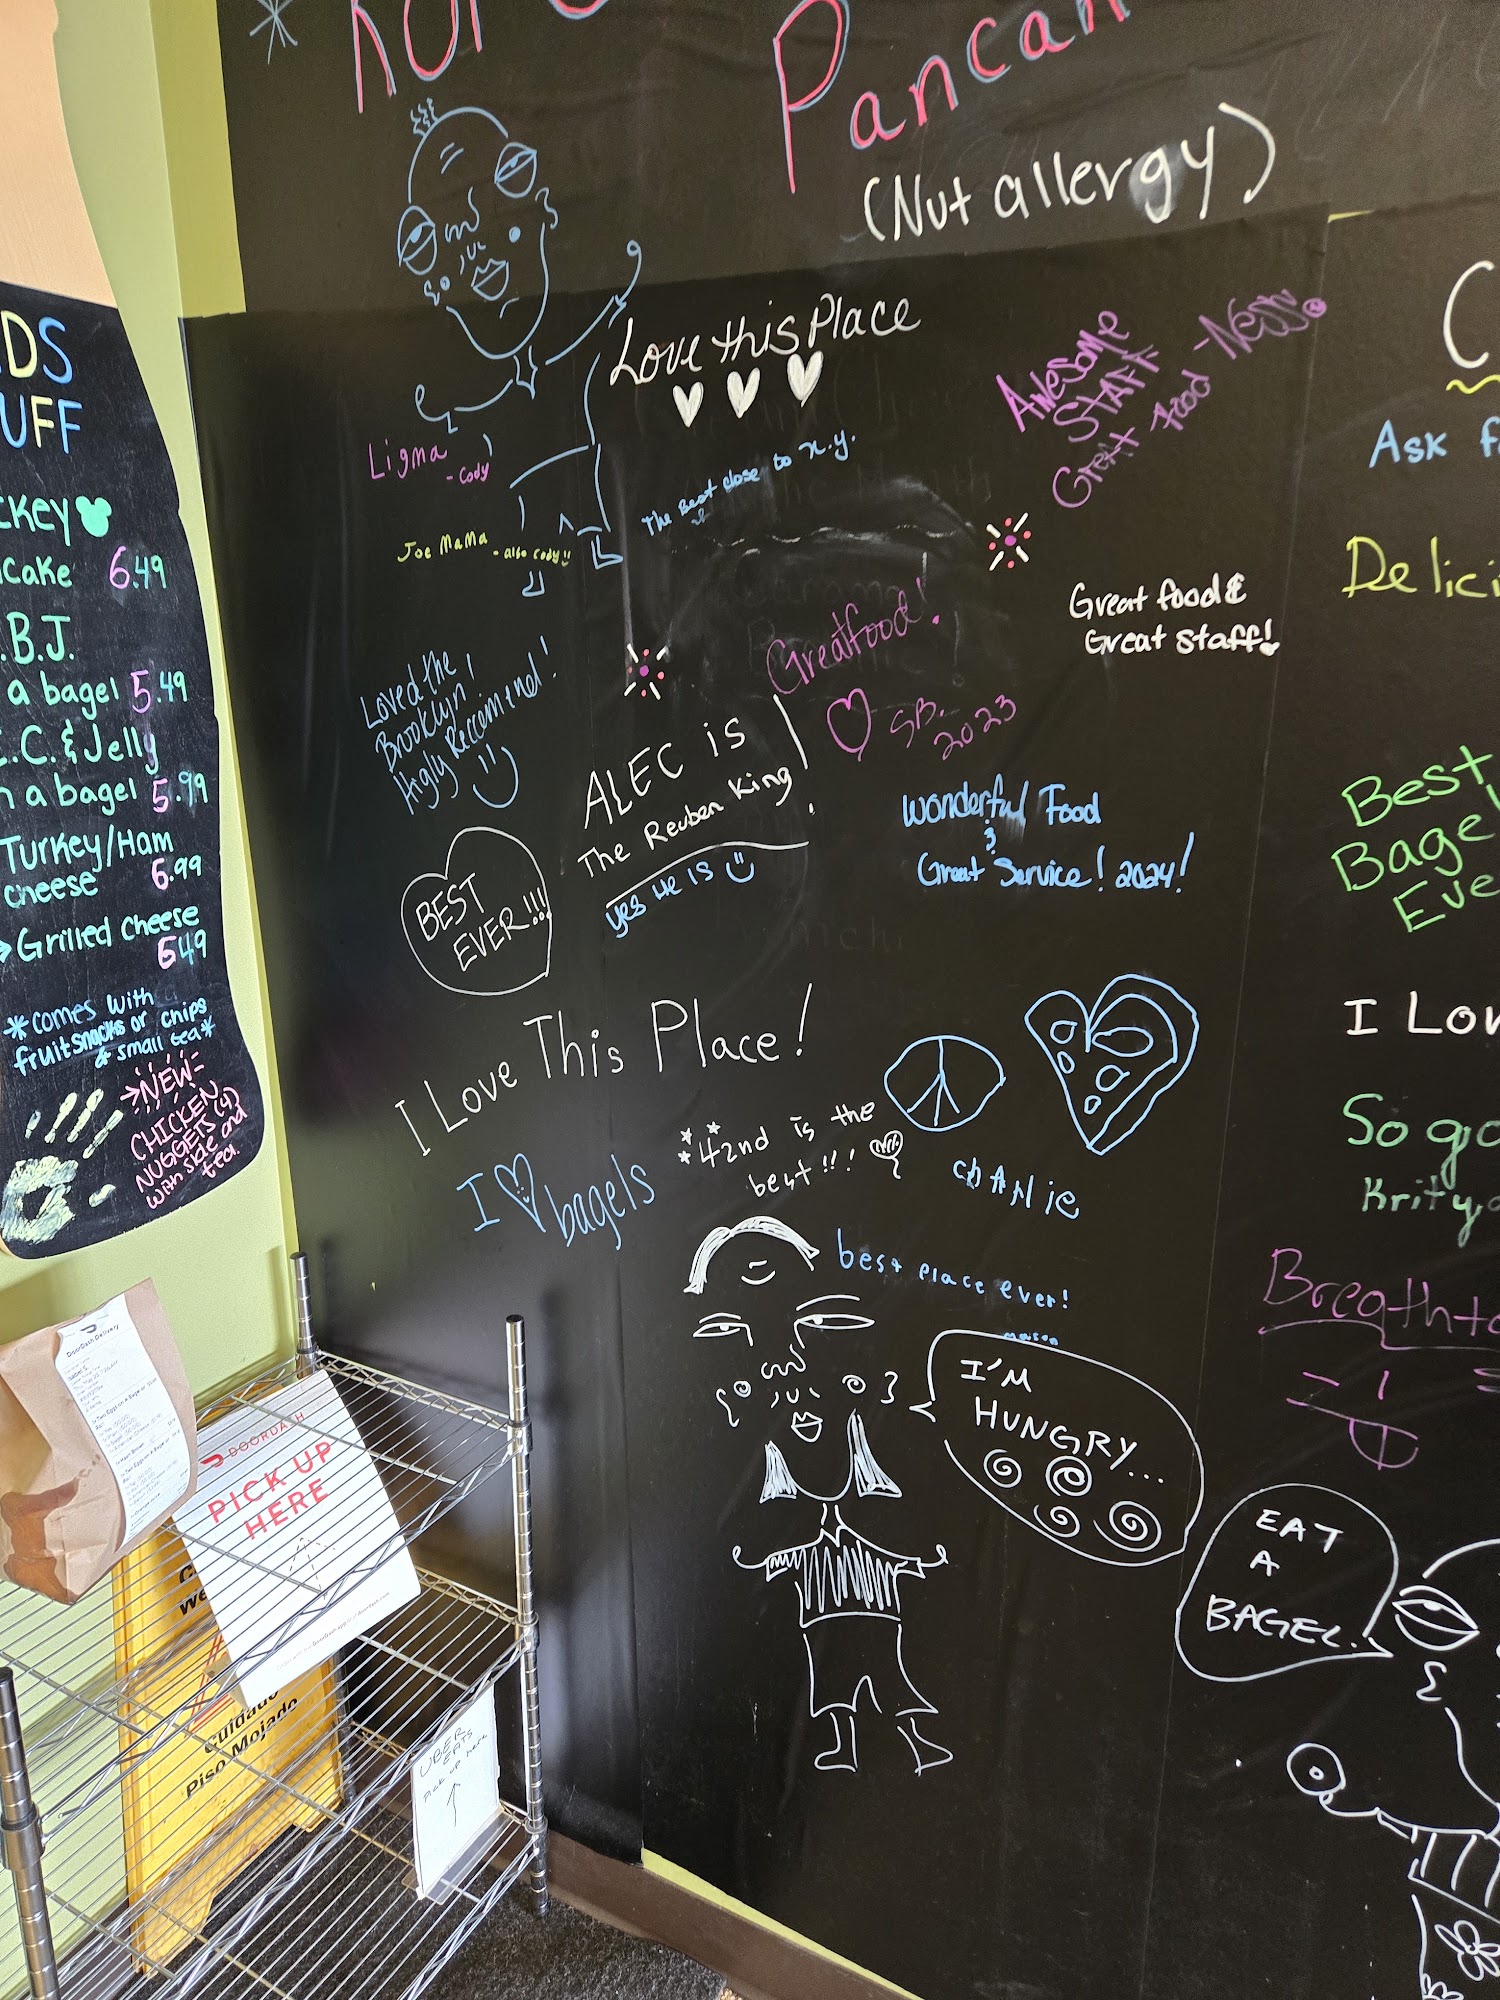 Pancak
(Nut allergy)
DS
UFF
ckey
cake 6.49
.B.J.
a bagel 5.49
.C. & Jelly
n a bagel 5.99
Turkey/Ham
cheese 6.99
Grilled cheese
6.49
*comes with a
fruitsnacks or chips
& small tea*
→NEW-
CHICKEN
NUGGETS (4)
with side and
tea.
Love this Place
Ligma
- Cody
Joe MaMa
- also cody
The Best close to n.y.
Awesome
STAFF
Great food -Ness
Great food &
Great staff!
Greatfood!
SB.
2023
Loved the
Brooklyn!
Higly Reccomend!
ALEC is
The Reuben King!
yes he is
BEST
EVER!!!
Wonderful Food
&
Great Service! 2024!
I Love This Place!
I bagels
*42nd is the
best!!!
charlie
best place ever!
mason
I'M
HUNGRY...
EAT
A
BAGEL.
C
Ask f
Delici
Best
Bage
Eve
I Lov
So go
Krity
Breathta
DoorDash Delivery
DOORDASH
PICK UP
HERE
Cuidado
Piso Mojado
UBER
EATS
PICK UP here